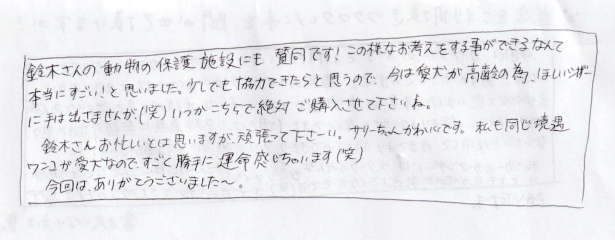 鈴木さんの動物の保護施設にも賛同です!この様なお考えをする事ができるなんて
本当にすごい!と思いました。少しでも協力できたらと思うので、今は愛犬が高齢の為、ほしいシザー
に手は出さませんが、(笑)いつかこちらで絶対ご購入させて下さいね。
鈴木さんお忙しいとは思いますが、頑張って下さーい。サリーちゃんかわいいです。私も同じ境遇
ワンコが愛犬なので、すごく勝手に運命感じちゃいます(笑)
今回は、ありがとうございました〜。